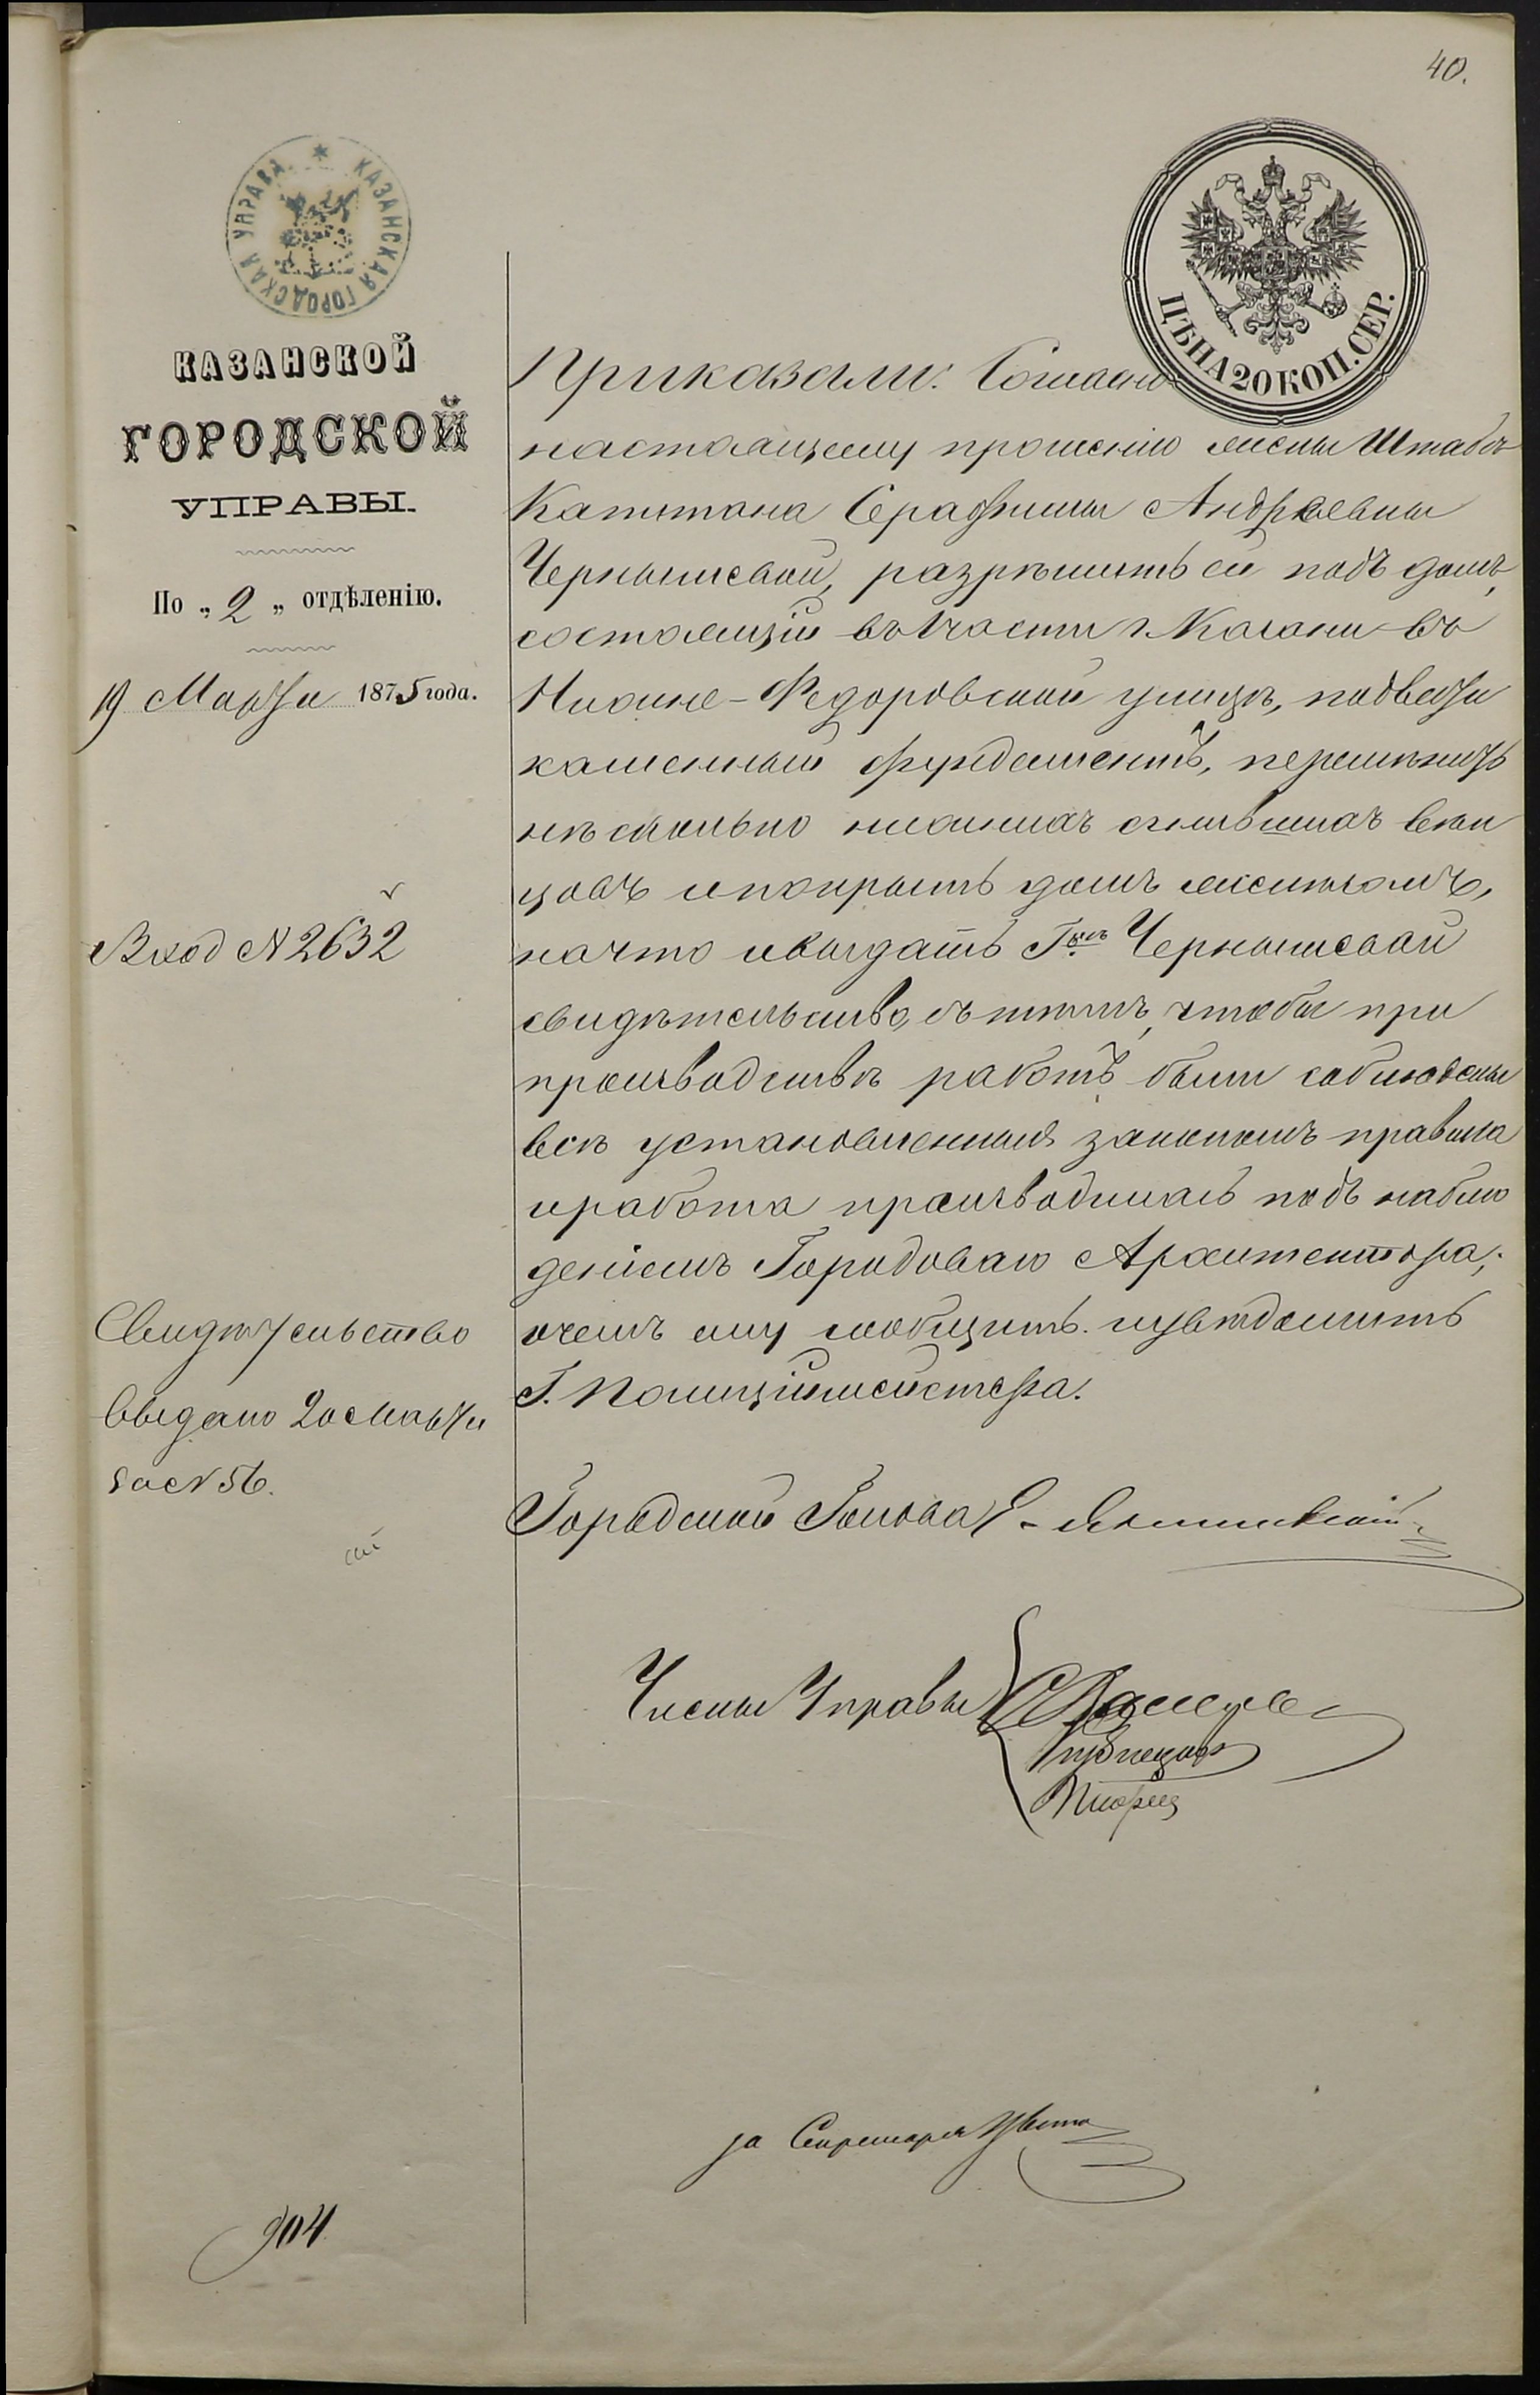 40.
КАЗАНСКАЯ ГОРОДСКАЯ УПРАВА
ЦѢНА 20 КОП. СЕР.
КАЗАНСКОЙ
ГОРОДСКОЙ
УПРАВЫ.
По „2„ отдѣленію.
19 Марта 1875 года.
Вход N 2632
Свидѣтельство
выдано 20 Марта
за N 56.
904
Приказали: Согласно
настоящему прошенію жены Штабсъ
Капитана Серафимы Андреевны
Чернышевой, разрѣшить ей подъ домъ,
состоящій въ 1 части г. Казани въ
Нижне-Федоровской улицѣ, подвести
каменный фундаментъ, перемѣнить
нѣсколько нижнихъ сгнившихъ вѣн
цовъ и покрыть домъ желѣзомъ,
на что и выдать Г-жѣ Чернышевой
свидѣтельство, съ тѣмъ, чтобы при
производствѣ работъ были соблюдены
всѣ установленныя закономъ правила
и работа производилась подъ наблю
деніемъ Городоваго Архитектора;
о чемъ ему сообщить и увѣдомить
Г. Полиціймейстера.
Городской Голова Е. Янишевскій
Члены Управы
за Секретаря